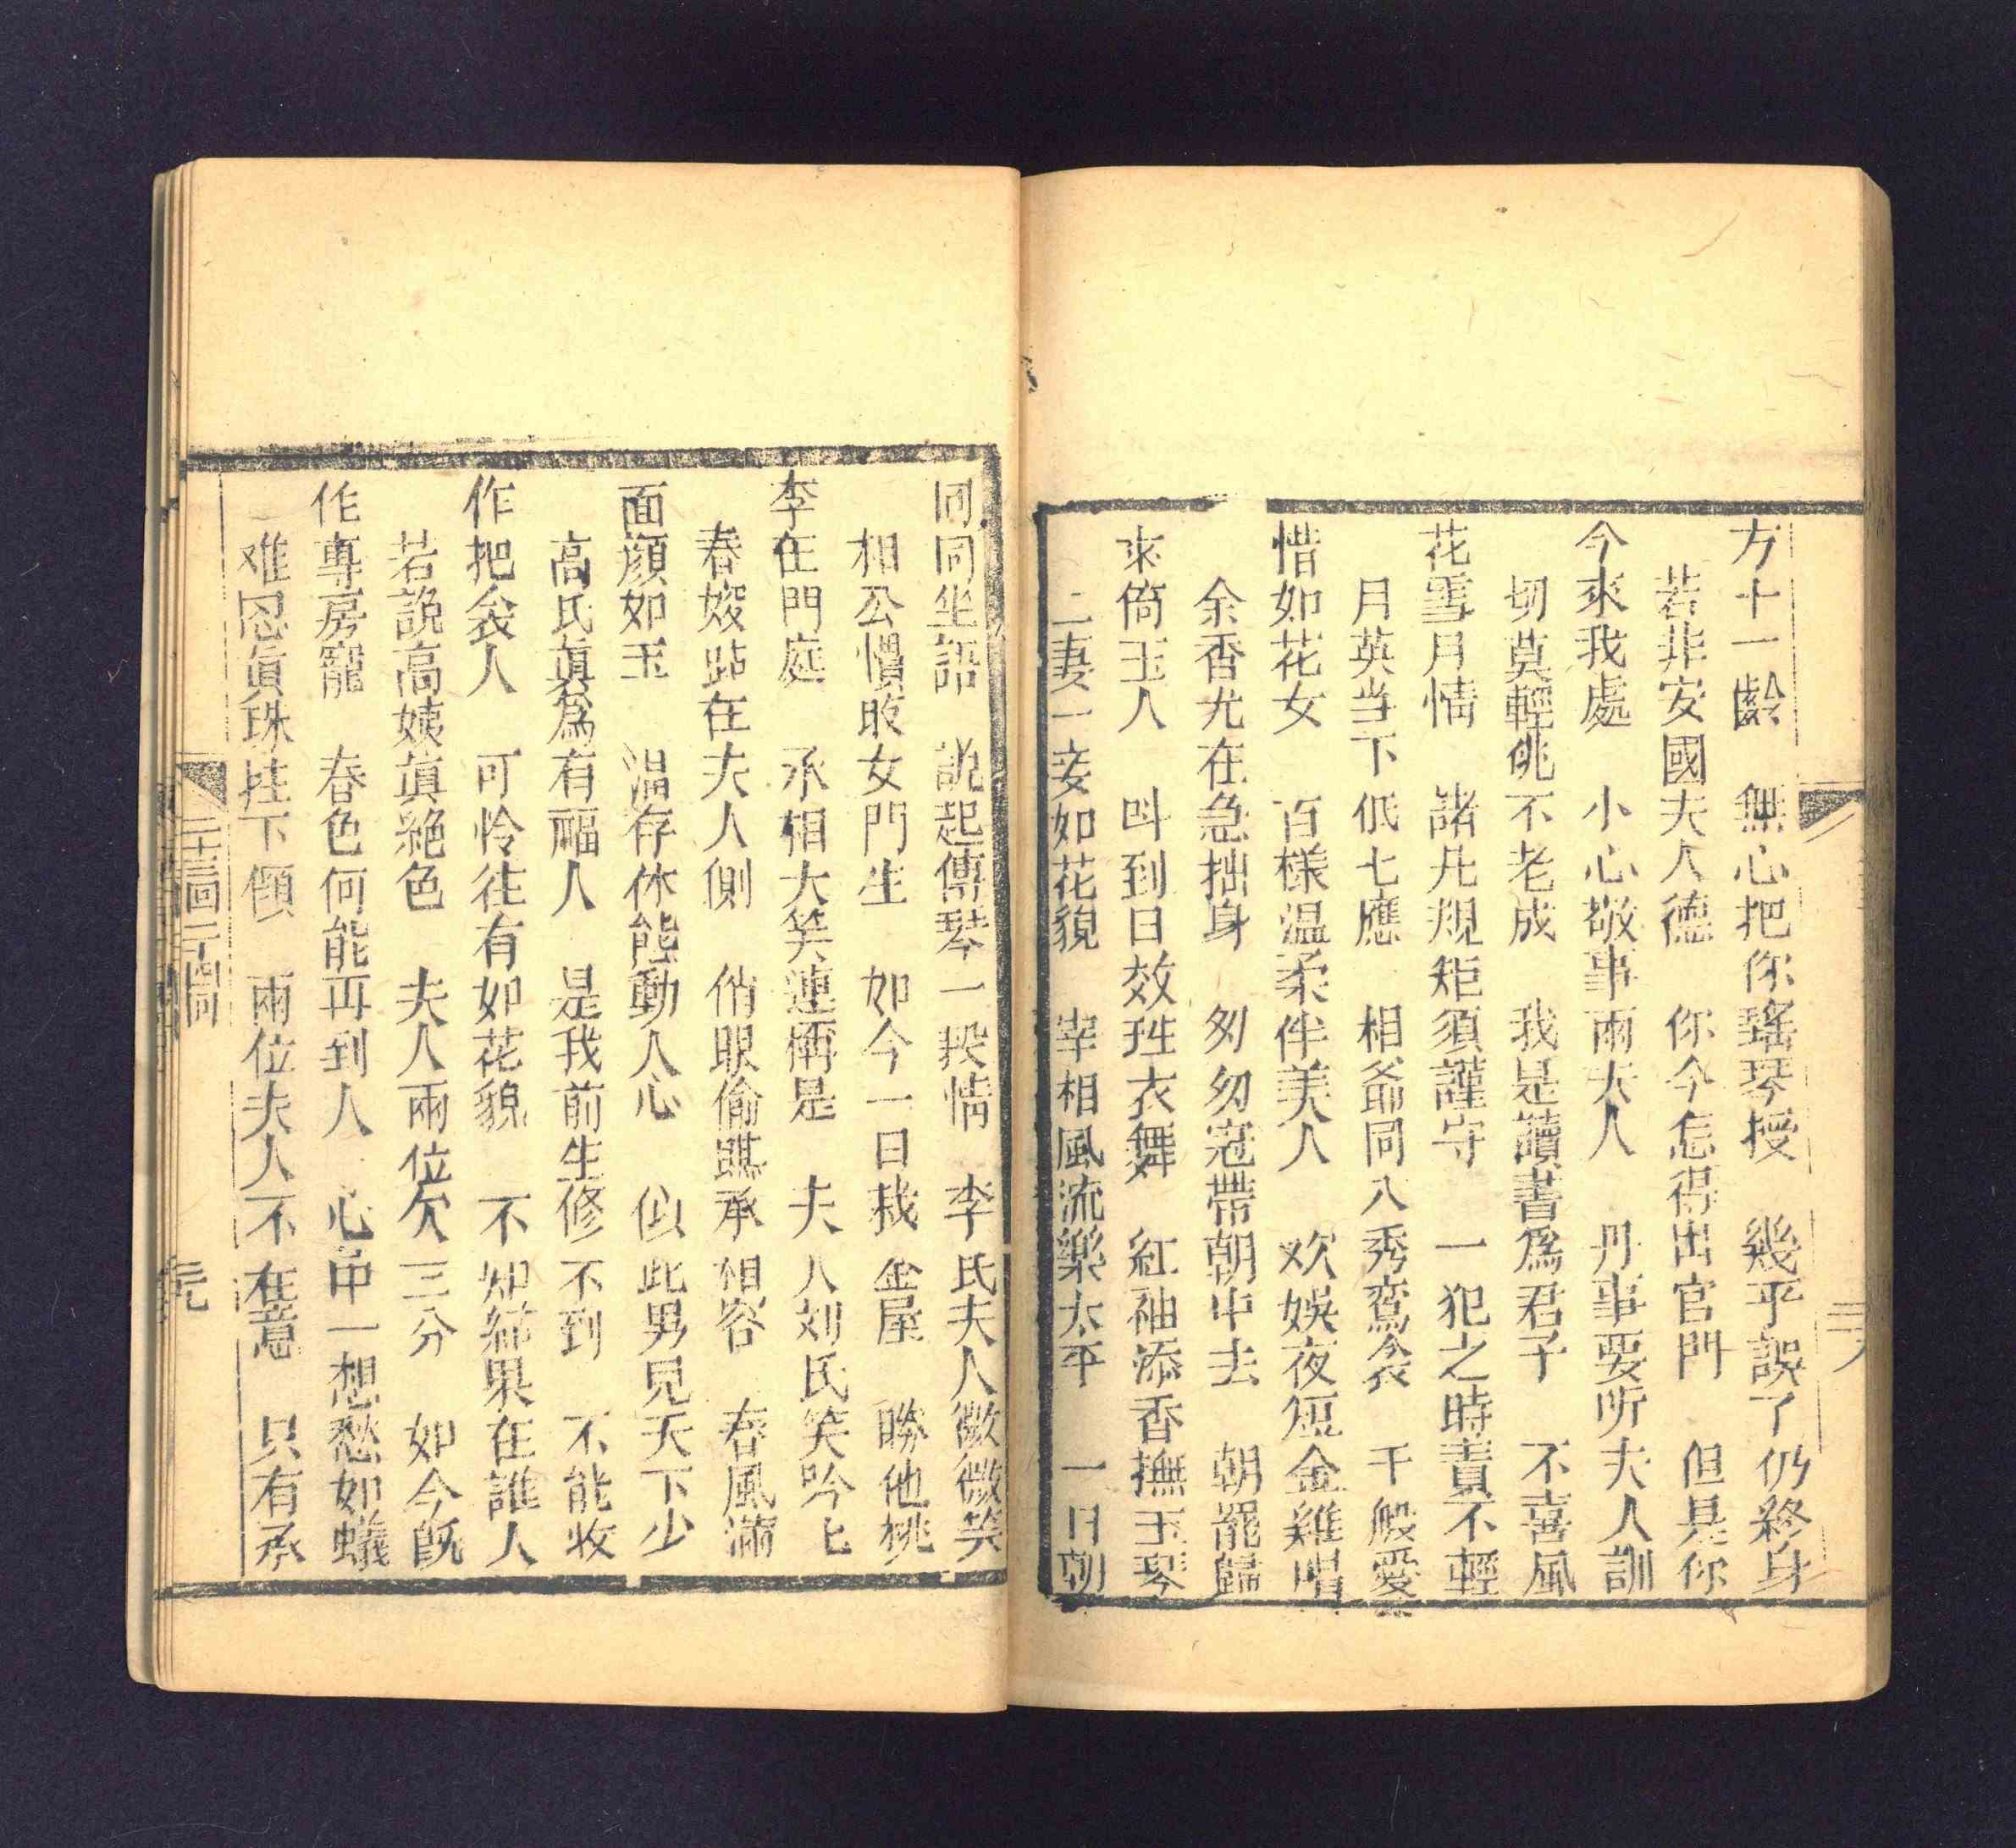 方十一齡　無心把你瑤琴授　幾乎誤了仍終身
若非安國夫人德　你今怎得出官門　但是你
今來我處　小心敬事兩夫人　丹事要听夫人訓
切莫輕佻不老成　我是讀書爲君子　不喜風
花雪月情　諸凡規矩須謹守　一犯之時責不輕
月英当下低七應　相爺同入秀鸞衾　千般愛
惜如花女　百樣温柔伴美人　欢娛夜短金雞唱
余香尤在急抽身　匆匆冠帶朝中去　朝罷歸
來倚玉人　叫到日效班衣舞　紅袖添香撫玉琴
二妻一妾如花貌　宰相風流樂太平　一日朝
回同坐語　說起傳琴一段情　李氏夫人微微笑
相公慣敗女門生　如今一日栽金屋　盼他桃
李在門庭　承相大笑連稱是　夫人刘氏笑吟七
春嫂跕在夫人側　俏眼偷瞧承相容　春風滿
面顔如玉　温存体態動人心　似此男兒天下少
高氏眞爲有福人　是我前生修不到　不能收
作把衾人　可怜徒有如花貌　不知結果在誰人
若說高姨眞絕色　夫人兩位欠三分　如今旣
作專房寵　春色何能再到人　心中一想愁如蟻
难忍眞珠挂下傾　兩位夫人不在意　只有承